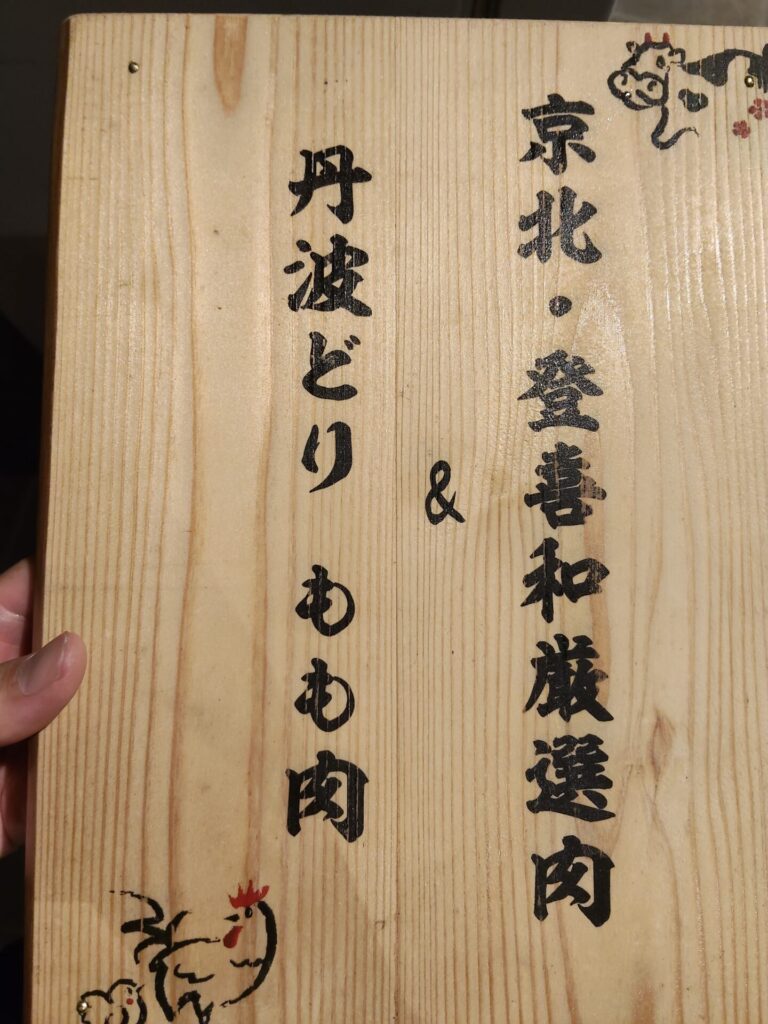 京北・登喜和厳選肉
&
丹波どり もも肉